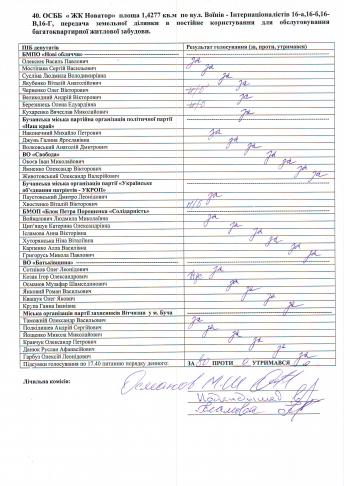 40. ОСББ « ЖК Новатор» площа 1,4277 кв.м по вул. Воїнів - Інтернаціоналістів 16-а,16-б,16-
В,16-Г, передача земельної ділянки в постійне користування для обслуговування
багатоквартирної житлової забудови.
ПІБ депутатів Результат голосування (за, проти, утримався)
БМПО «Нові обличчя»
Олексюк Василь Павлович за
Мостіпака Сергій Васильович за
Суслова Людмила Володимирівна за
Якубенко Віталій Анатолійович за
Черненко Олег Вікторович
Великодний Андрій Вікторович за
Березинець Олена Едуардівна
Кухаренко Вячеслав Миколайович за
Бучанська міська партійна організація політичної партії
«Наш край»
Наконечний Михайло Петрович за
Джунь Галина Ярославівна за
Волковський Анатолій Дмитрович за
ВО «Свобода»
Овсєв Іван Миколайович за
Яненко Олександр Вікторович за
Животовський Олександр Валерійович за
Бучанська міська організація партії «Українське
об'єднання патріотів - УКРОП»
Паустовський Дмитро Леонідович за
Квасенко Віталій Вікторович
БМОП «Блок Петра Порошенка «Солідарність»
Войцилович Людмила Миколаївна за
Ципʼящук Катерина Олександрівна за
Ісламова Анна Вікторівна за
Хуторянська Ніна Віталіївна за
Карпенко Алла Василівна за
Григорусь Микола Павлович за
ВО «Батьківщина»
Сотніков Олег Леонідович за
Козак Ігор Олександрович
Османов Музафар Шамседінович за
Яковий Роман Васильович за
Квашук Олег Якович за
Крупа Ганна Іванівна за
Міська організація партії захисників Вітчизни у м. Буча
Тановий Олександр Васильович за
Поліщук Андрій Сергійович за
Йощенко Микола Миколайович за
Кравчук Олександр Петрович за
Данюк Руслан Афанасійович за
Гарбуз Олексій Леонідович за
Підсумки голосування по 17.40 питанню порядку денного: ЗА ПРОТИ 0 УТРИМАВСЯ 0
Лічильна комісія: Османов М.Ш